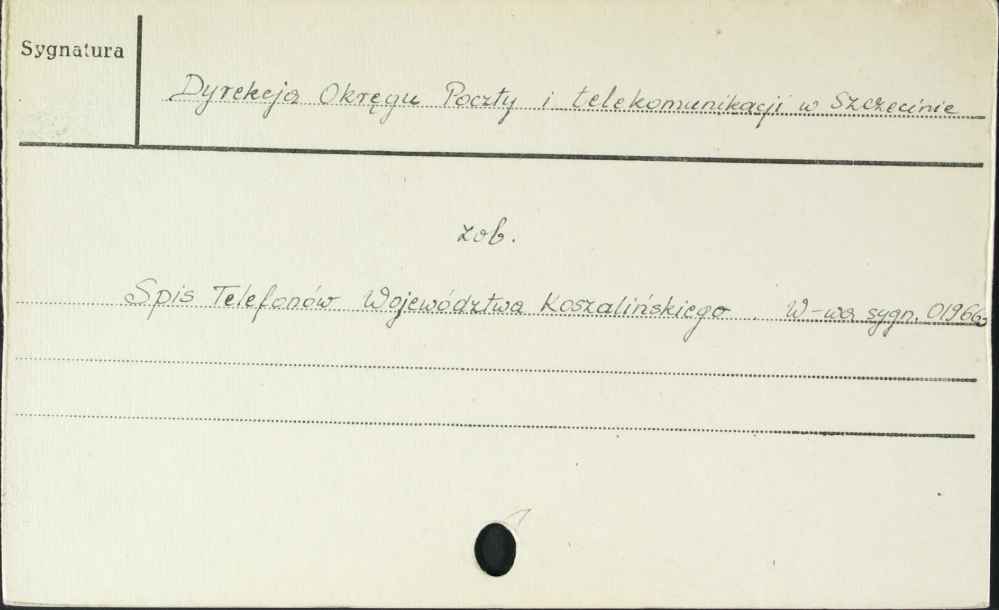 Sygnatura
Dyrekcja Okręgu Poczty i telekomunikacji w Szczecinie
zob.
Spis Telefonów Województwa Koszalińskiego. W-wa sygn. 01966